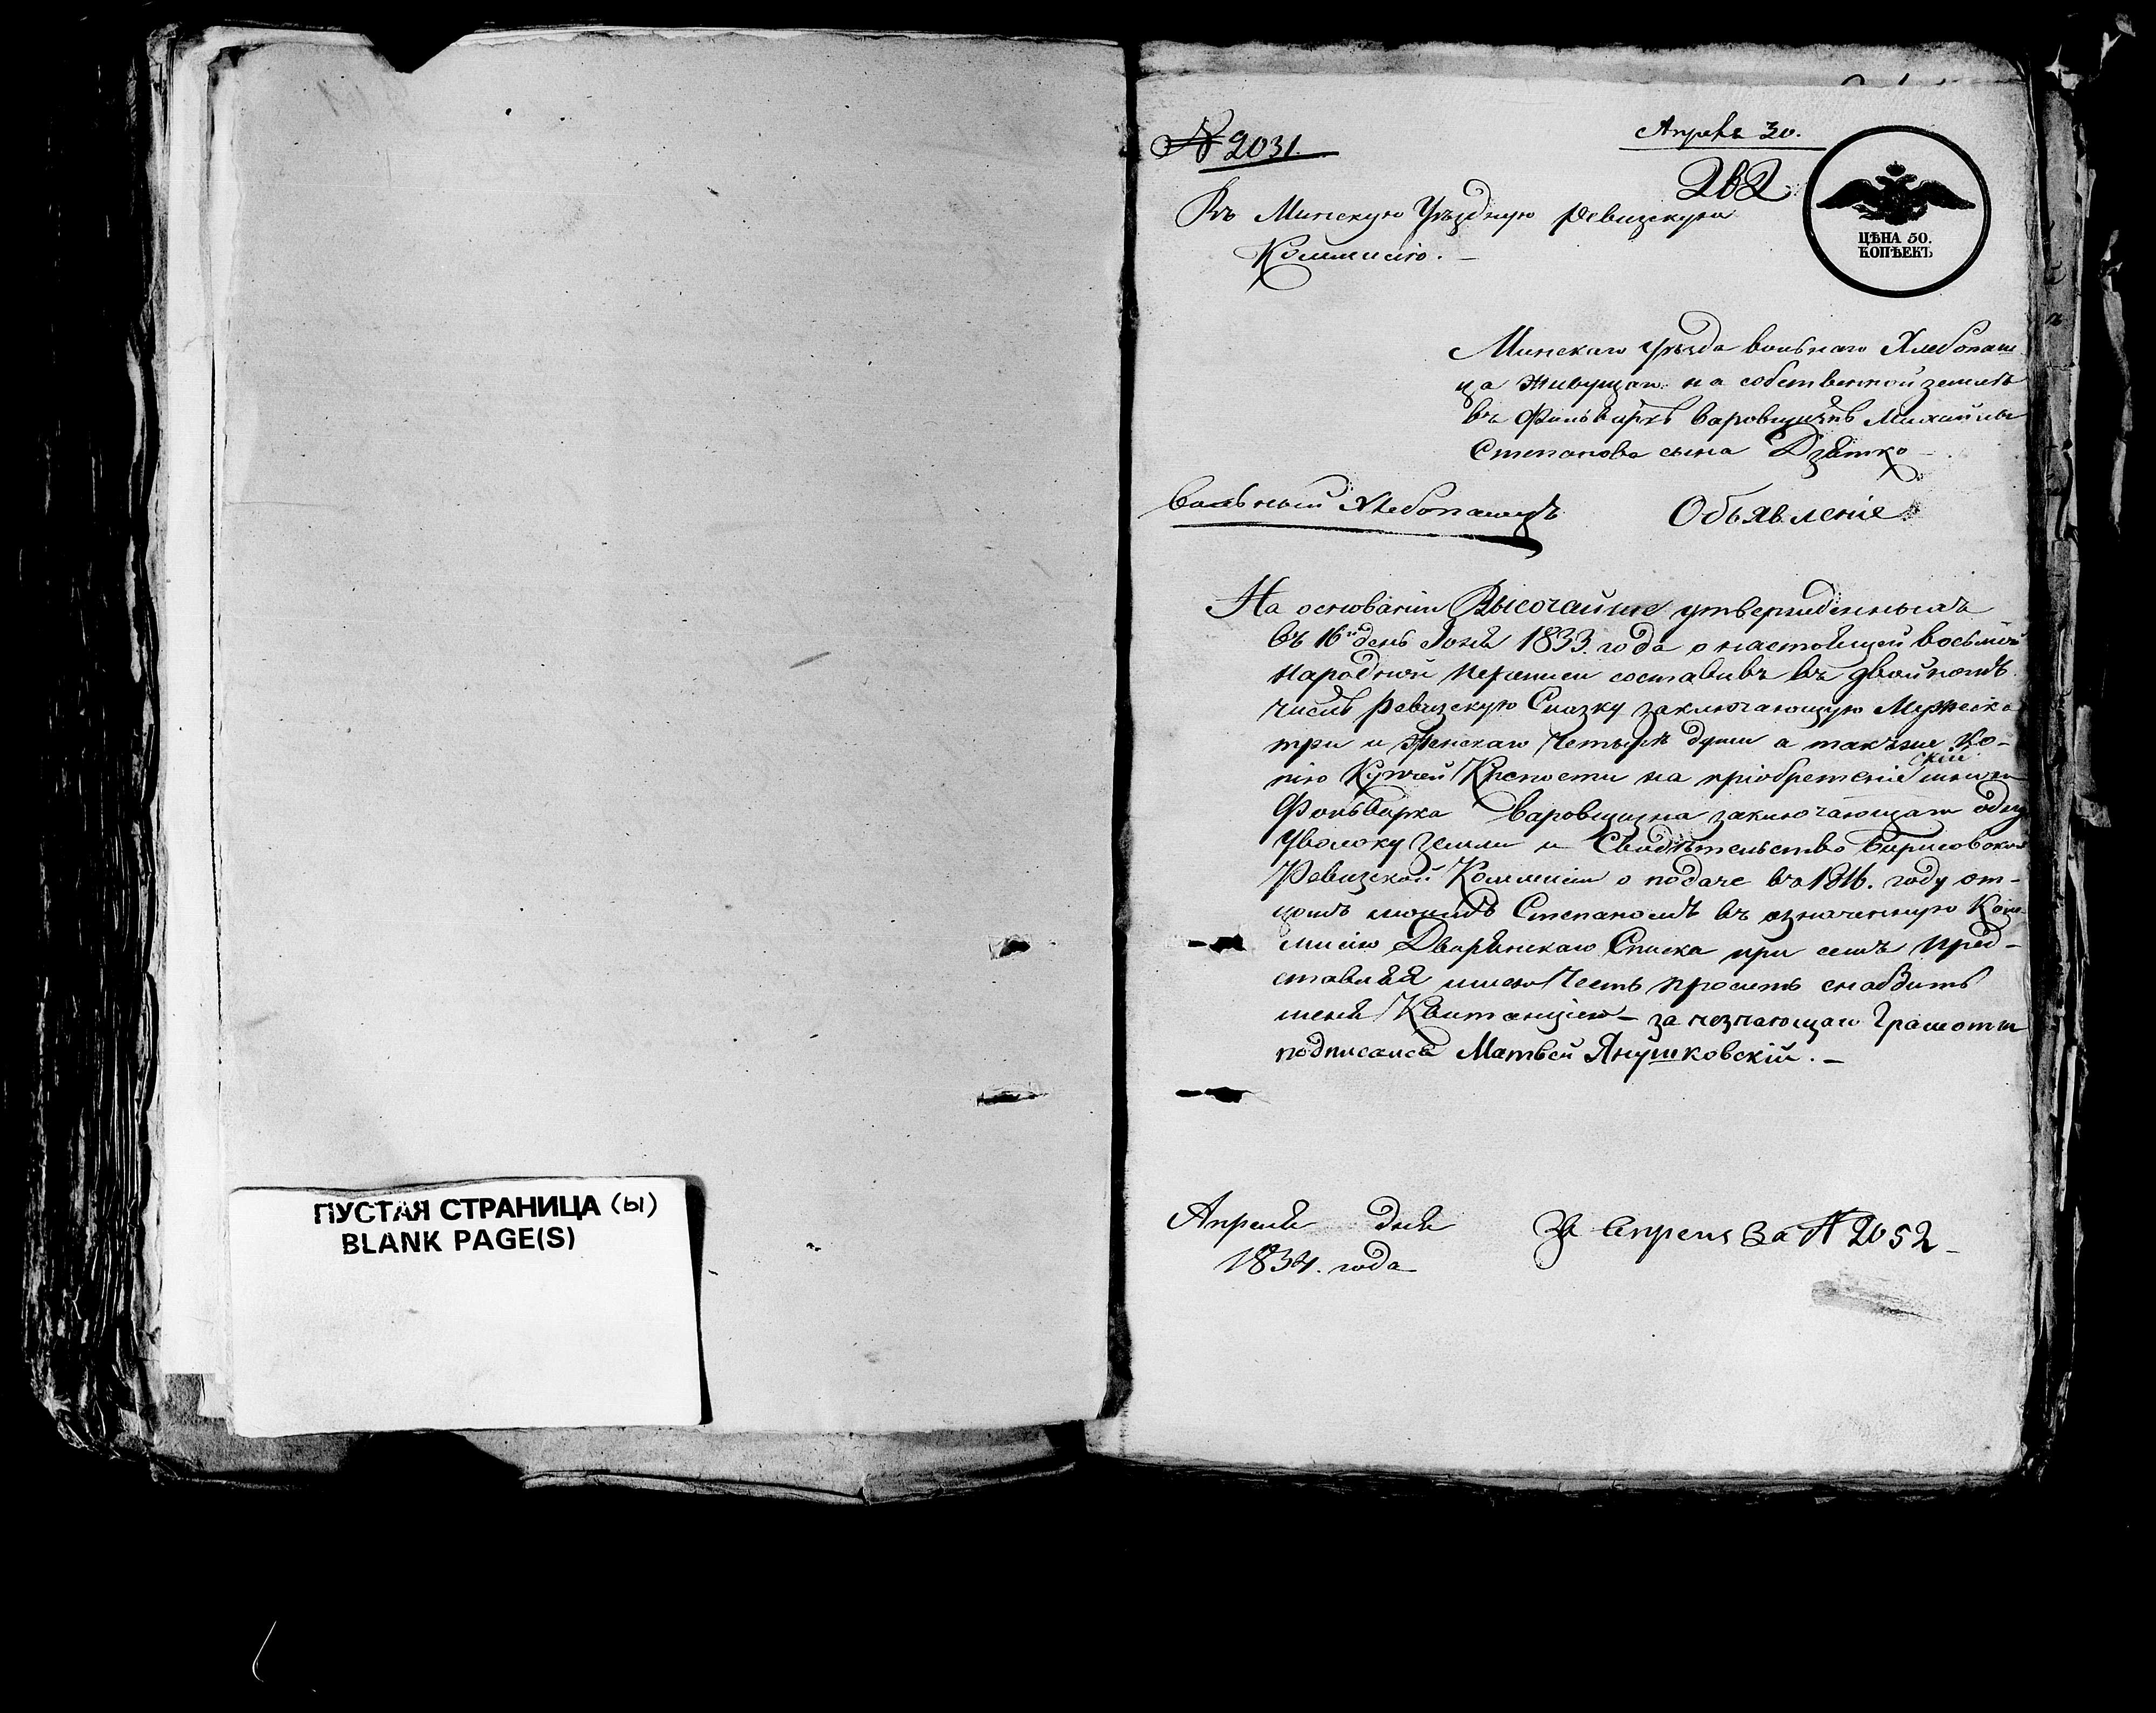 ПУСТАЯ СТРАНИЦА (ы)
BLANK PAGE(S)
№ 2031.
Апрель 30.
ЦѢНА 50.
КОПѢЕКЪ
Въ Минскую Уѣздную Ревизскую
Коммисію. –
Минскаго уѣзда вольнаго Хлебопаш
ца живущаго на собственной земле
въ Фольварке Варовщизне Михайлы
Степанова сына Дзятко –
вольный хлебопашецъ
Объявленіе
На основаніи Высочайше утвержденныхъ
въ 16й день Іюня 1833. года о настоящей восьмой
народной переписи составивъ въ двойномъ
числѣ Ревизскую Сказку заключающую Мужеска
три и Женскаго четырѣ души а также Ко-
пію Купчей Крепости на пріобретеніе
Фольварка Варовщизна заключающаго одну
Уволоку земли и Свидѣтельство Борисовской
Ревизской Коммисіи о подаче въ 1816. году от-
цомъ моимъ Степаномъ въ означенную Ком-
мисію Дворянскаго Списка при семъ пред-
ставляя имею честь просить снабдить
меня Квитанціею – за незнающаго Грамоты
подписался Матвей Янушковскій. –
Апреля дня
1834. года
30 Апреля за № 2052 –